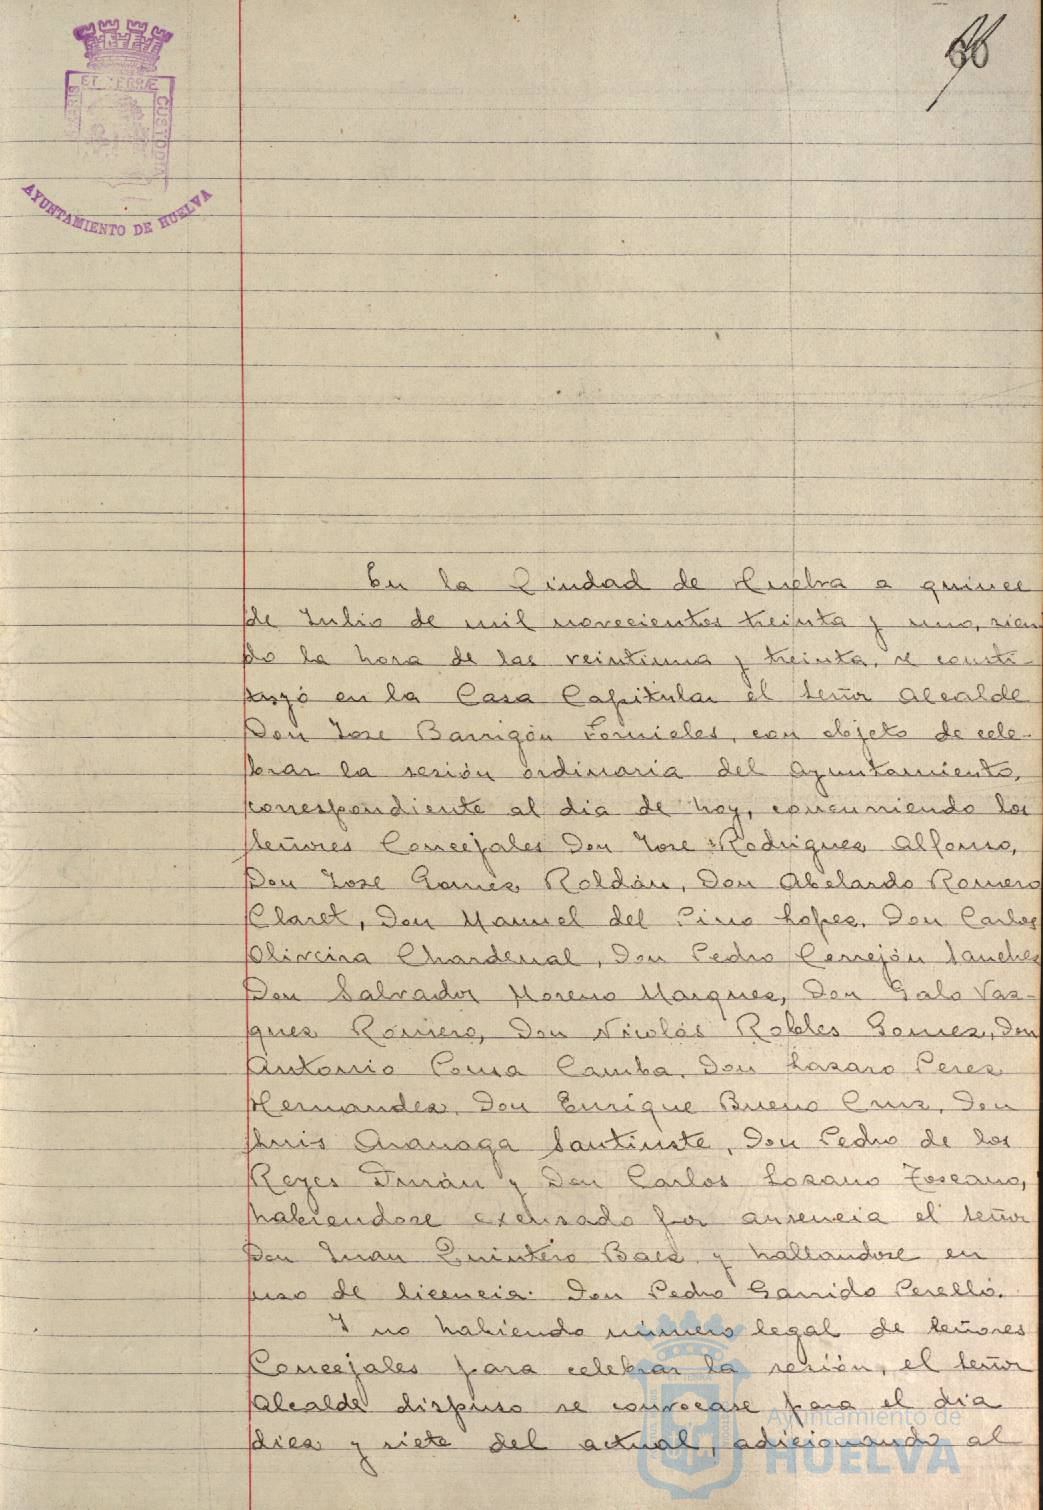 66
ET TERRÆ
CUSTODIA
AYUNTAMIENTO DE HUELVA
En la Ciudad de Huelva a quince
de Julio de mil novecientos treinta y uno, sien
do la hora de las veintiuna y treinta, se consti-
tuyó en la Casa Capitular el señor Alcalde
Don Jose Barrigón Fornieles, con objeto de cele-
brar la sesión ordinaria del Ayuntamiento,
correspondiente al dia de hoy, concurriendo los
señores Concejales Don Jose Rodriguez Alfonso,
Don Jose Gomez Roldán, Don Abelardo Romero
Claret, Don Manuel del Pino Lopez, Don Carlos
Oliveira Chardenal, Don Pedro Cerrejón Sanchez
Don Salvador Moreno Marquez, Don Galo Vaz-
quez Romero, Don Nicolás Robles Gomez, Don
Antonio Pousa Camba, Don Lazaro Perez
Hernandez, Don Enrique Bueno Cruz, Don
Luis Aranaga Santiuste, Don Pedro de los
Reyes Durán y Don Carlos Lozano Toscano,
habiendose excusado por ausencia el señor
Don Juan Quintero Baez y hallandose en
uso de licencia Don Pedro Garrido Perelló.
Y no habiendo número legal de señores
Concejales para celebrar la sesión, el señor
Alcalde dispuso se convocase para el dia
diez y siete del actual, adicionando al
Ayuntamiento de
HUELVA